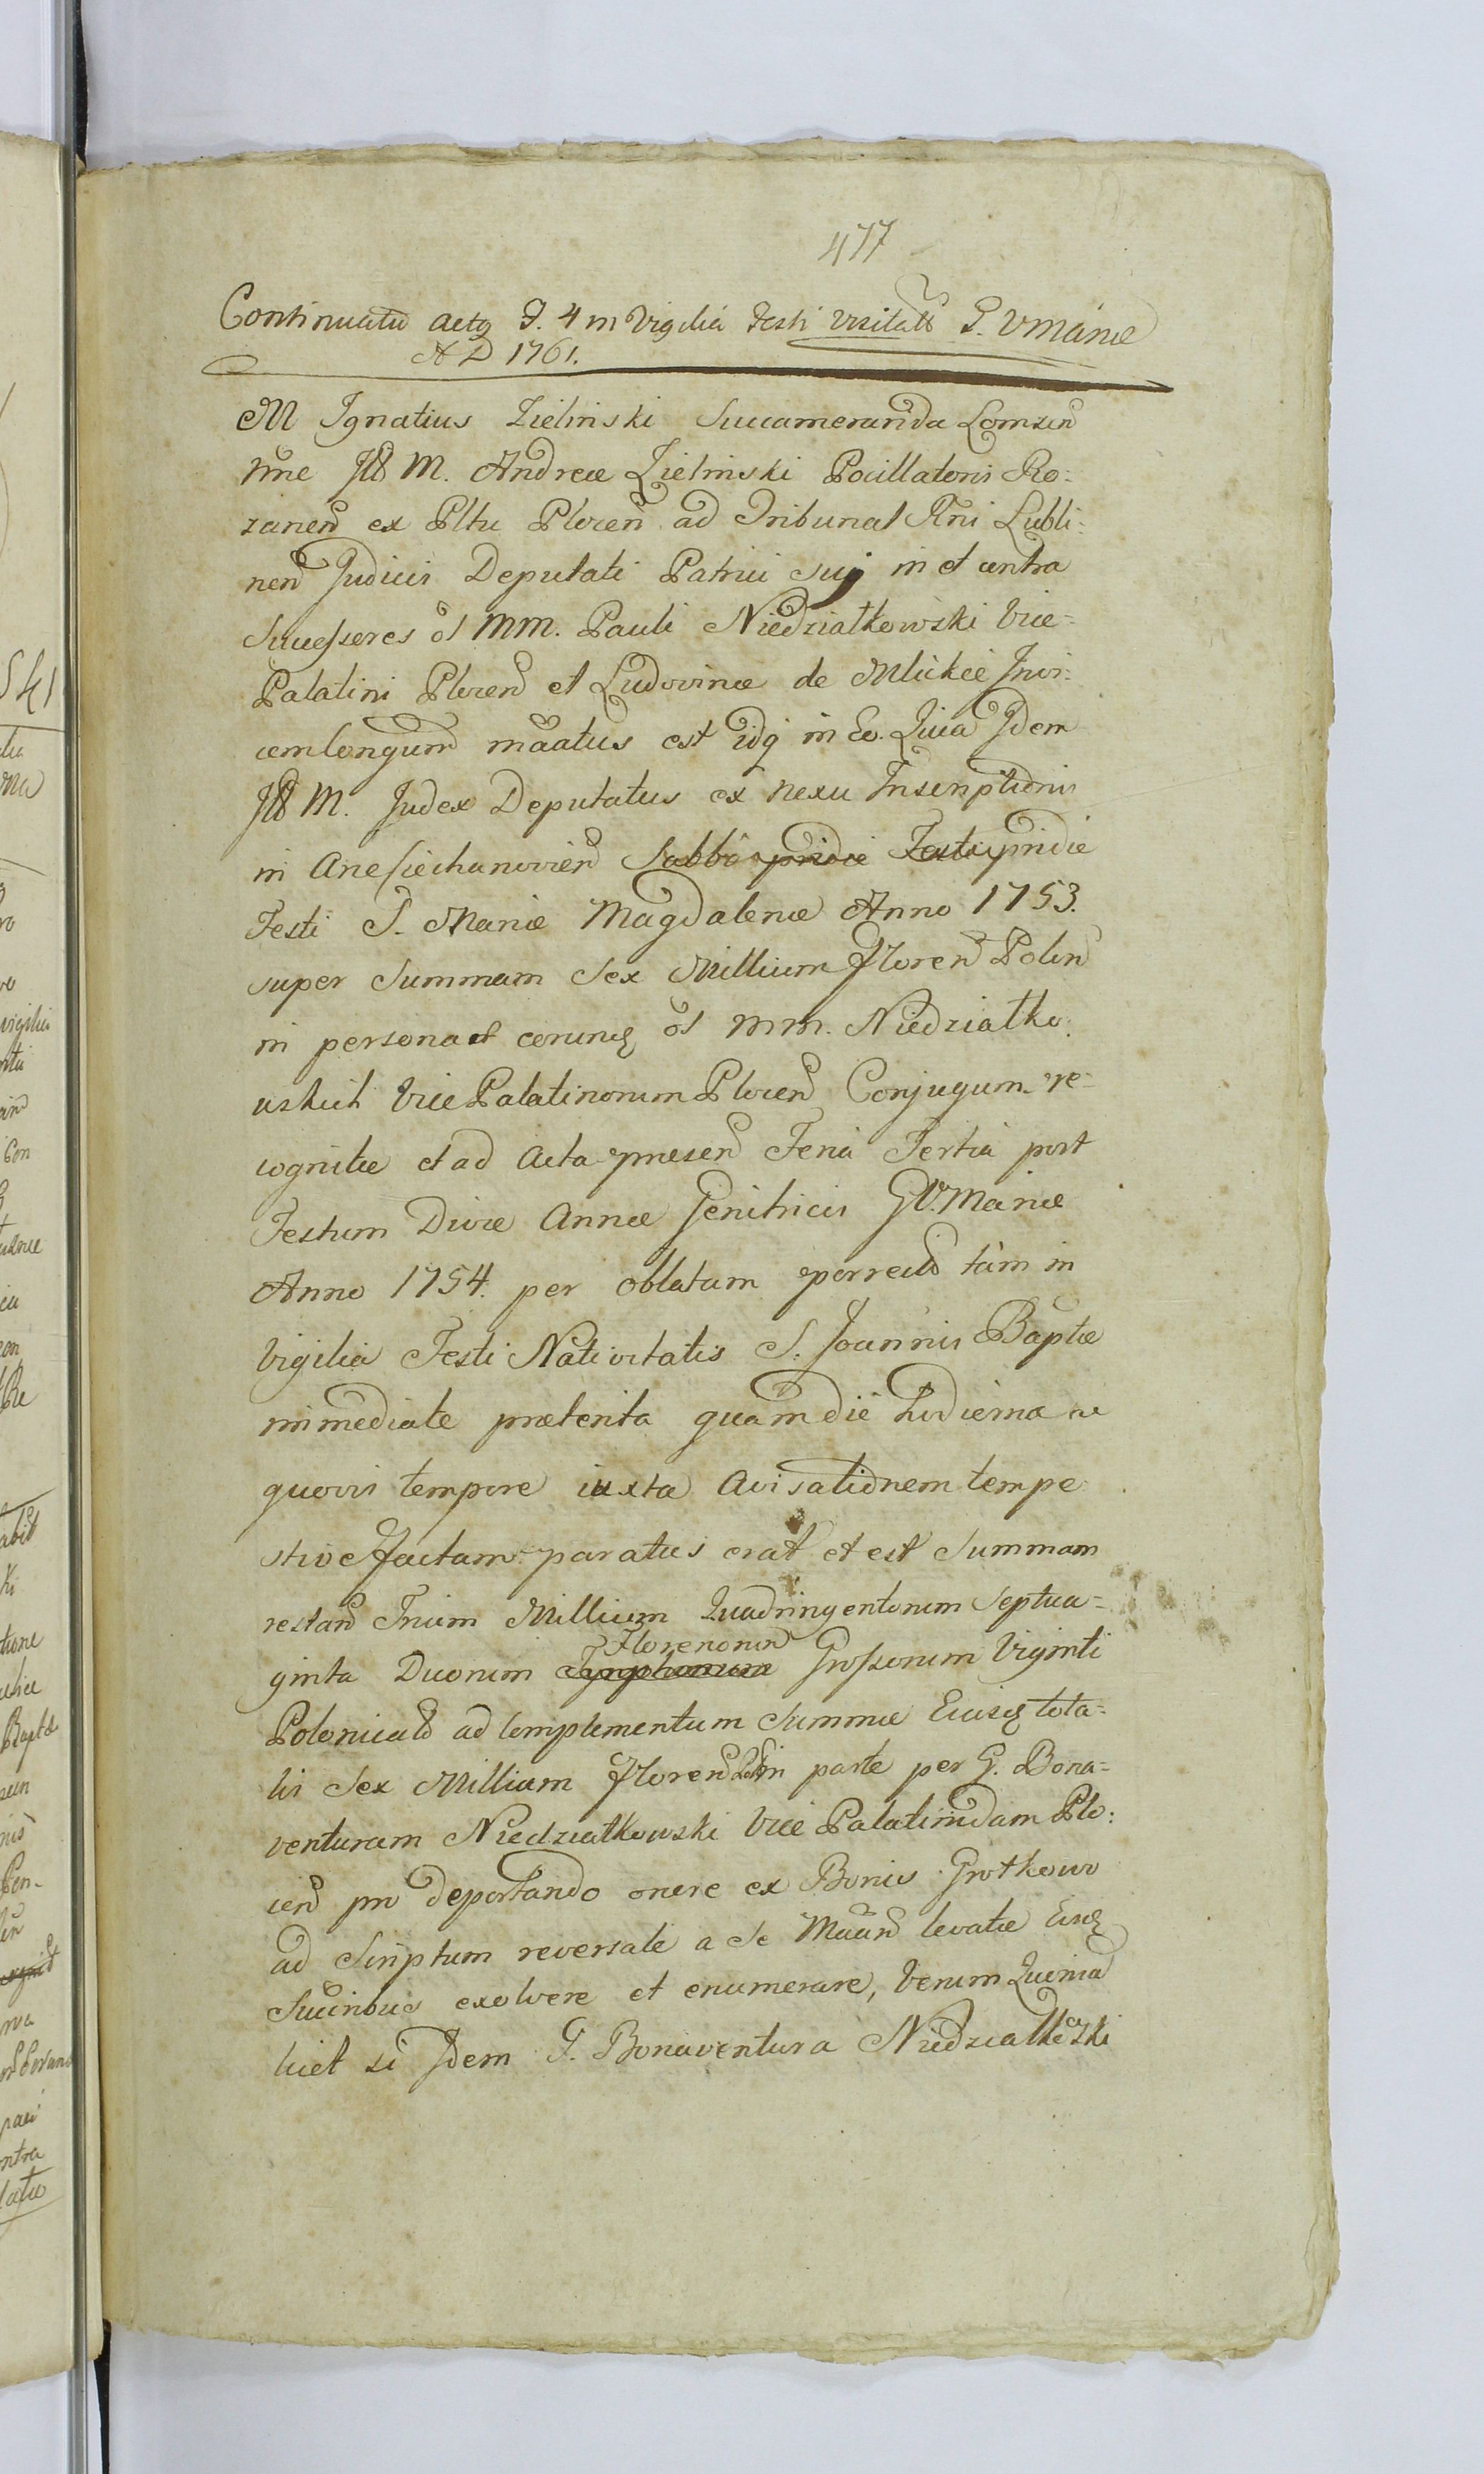 477
Continuatio actq F. 4 in Vigilia Festi Visitatt P. V Mariæ
A D 1761.
M Ignatius Zielinski Succamerarida Lomzen
nne M. Andreæ Zielinski Pocillatoris Ro:
zanen ex Pltu Plocen ad Tribunal Rni Lubli:
nen Judicis Deputati Patrui sui in et contra
Successores ol MM. Pauli Niedziałkowski Vice-
Palatini Plocen et Ludovinæ de Mlickie Invi:
cem Congum maatus est idq in Eo. Quia Idem
M. Judex Deputatus ex nexu Inscriptionis
in Ane Ciechanovien Sabbo pridie Festi pridie
Festi S. Mariæ Magdalenæ Anno 1753.
super Summam Sex Millium Floren Polon
in persona et eorunq ol MM. Niedziałko:
wskich Vice Palatinorum Plocen Conjugum re-
cognitæ et ad Acta præsen Feria Tertia post
Festum Divæ Annæ Genitricis G V. Mariæ
Anno 1754. per oblatam porrectæ tàm in
Vigilia Festi Nativitatis S. Joannis Baptæ
immediate præterita quam die hodierna ac
quovis tempore iuxta Avisationem tempe
stive factam paratus erat et est Summam
restan Trium Millium Quadringentorum Septua-
ginta Duorum Florenorum
Tymphonum Grossorum Viginti
Polonical ad Complementum Summæ Eiusq tota-
lis Sex Millium Floren Pol in parte per G. Bona-
venturam Niedziałkowski Vice Palatinidam Plo:
cen pro deportando onere ex Bonis Grotkowo
ad Scriptum reversale a se Maan levatæ Eisq
Succribus exolvere et enumerare, Verum Quinia
licet si Idem G. Bonaventura Niedziałkoski